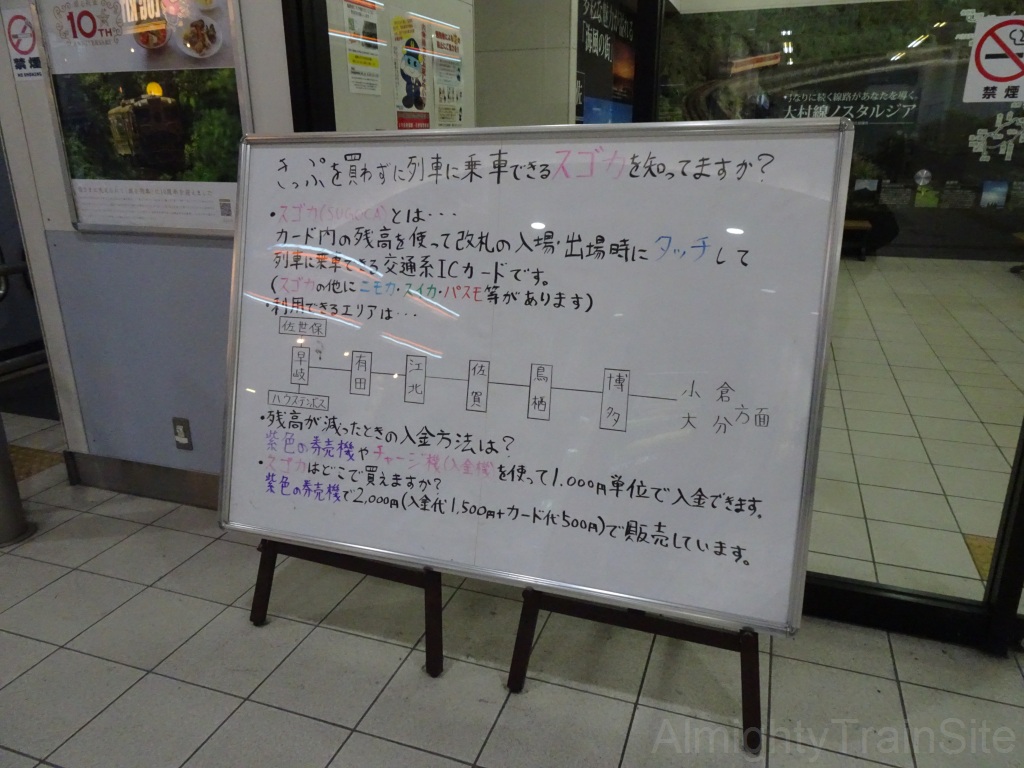 禁煙
10TH
きっぷを買わずに列車に乗車できるスゴカを知ってますか?
・スゴカ(SUGOCA)とは…
カード内の残高を使って改札の入場・出場時にタッチして
列車に乗車できる交通系ICカードです。
(スゴカの他にニモカ・スイカ・パスモ等があります)
・利用できるエリアは…
佐世保
早岐 有田 江北 佐賀 鳥栖 博多 小倉 大分 方面
ハウステンボス
・残高が減ったときの入金方法は?
紫色の券売機やチャージ機(入金機)を使って1,000円単位で入金できます。
・スゴカはどこで買えますか?
紫色の券売機で2,000円(入金代1,500円+カード代500円)で販売しています。
「海風の街」
なりに続く線路があなたを導く、
大村線ノスタルジア
禁煙
AlmightyTrainSite